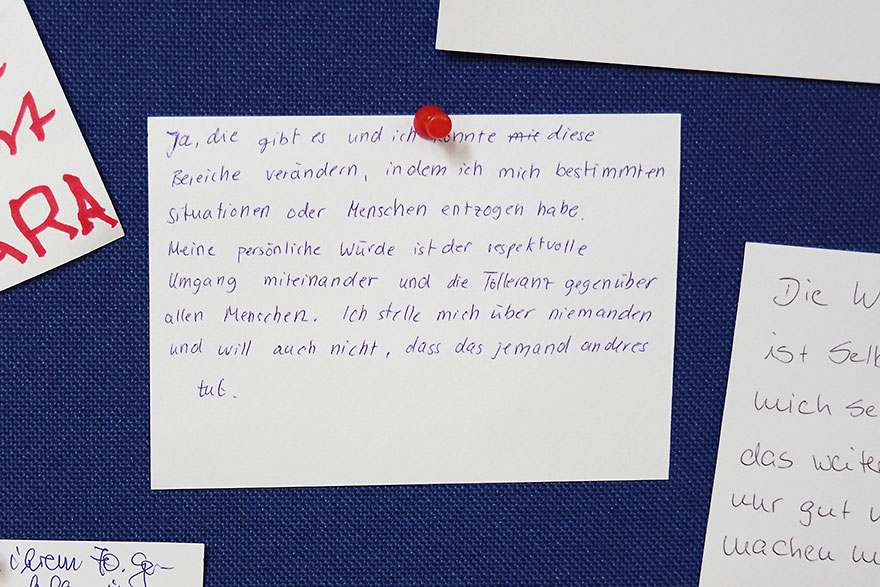 Ja, die gibt es und ich konnte mit diese
Bereiche verändern, indem ich mich bestimmten
Situationen oder Menschen entzogen habe.
Meine persönliche Würde ist der respektvolle
Umgang miteinander und die Tolleranz gegenüber
allen Menschen. Ich stelle mich über niemanden
und will auch nicht, dass das jemand anderes
tut.
ARA
Die W
ist Selb
mich se
das weiter
nur gut
machen
ihrem 70. Ge-